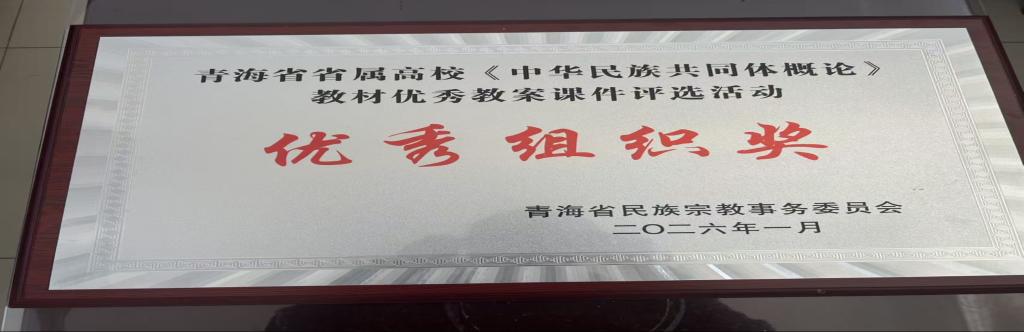 青海省省属高校《中华民族共同体概论》
教材优秀教案课件评选活动
优秀组织奖
青海省民族宗教事务委员会
二〇二六年一月